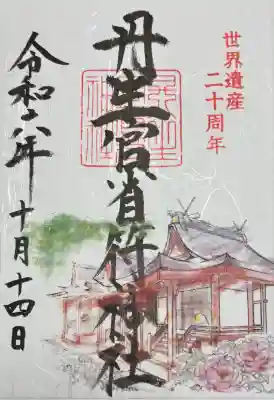 世界遺産
二十周年
丹生官省符神社
令和六年 十月十四日